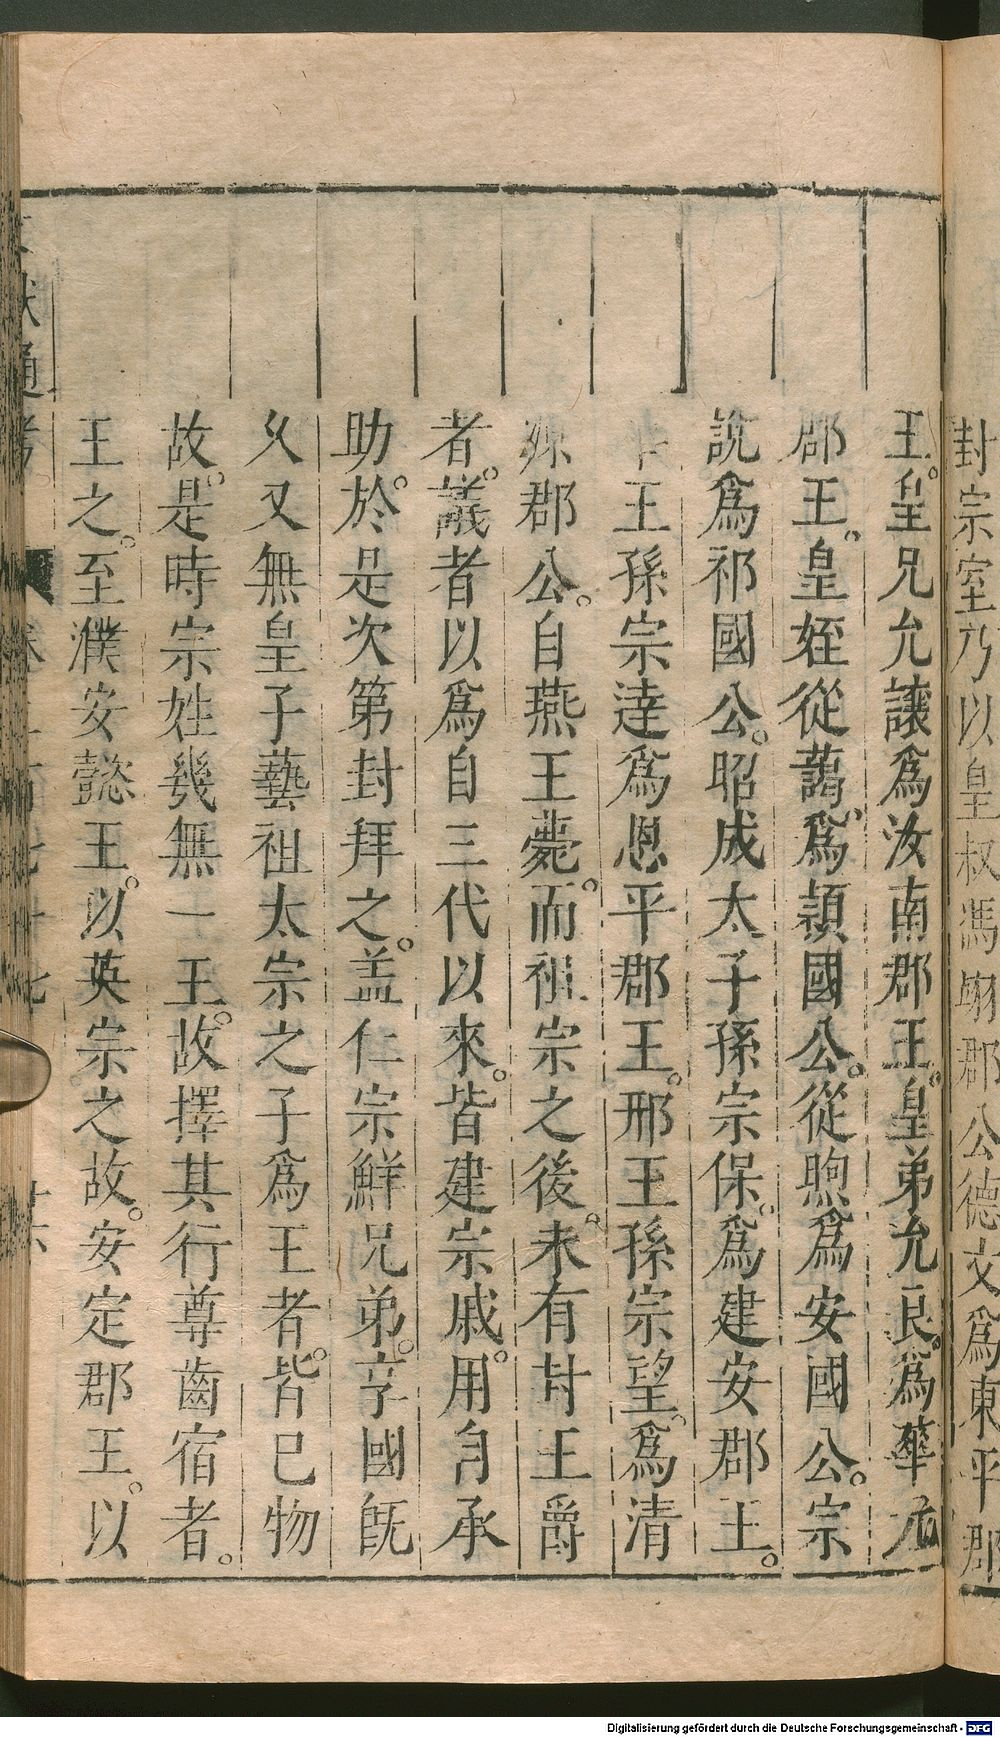 封宗室乃以皇叔馮翊郡公德文爲東平郡
王。皇兄允讓爲汝南郡王。皇弟允良。爲華原
郡王。皇姪從藹。爲潁國公。從煦爲安國公。宗
說爲祁國公。昭成太子孫宗保。爲建安郡王。
王孫宗達爲恩平郡王。邢王孫宗望。爲清
源郡公。自燕王薨。而祖宗之後。未有封王爵
者。議者以爲自三代以來。皆建宗戚。用自承
助。於是次第封拜之。盖仁宗鮮兄弟。享國旣
乆又無皇子藝祖太宗之子爲王者。皆已物
故。是時宗姓幾無一王。故擇其行尊齒宿者。
王之。至濮安懿王。以英宗之故。安定郡王。以
文獻通考 卷二百七十七 十六
Digitalisierung gefördert durch die Deutsche Forschungsgemeinschaft - DFG